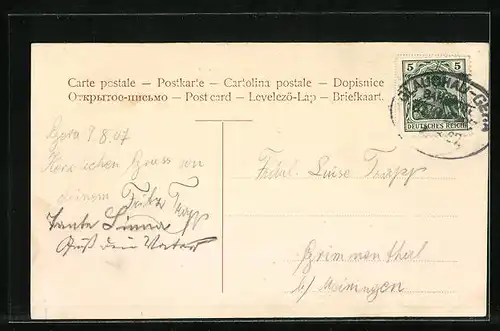 Carte postale – Postkarte – Cartolina postale – Dopisnice
Открытое-письмо – Post card – Levelező-Lap – Briefkaart.
5 5
DEUTSCHES REICH
GLAUCHAU-GERA
Gera 8.07
Herzlichen Gruss von
deinem Fritz Trapp
Tante Linna
Gruß dein Vater
Frdul. Luise Trapp
Grimmenthal
b/ Meiningen